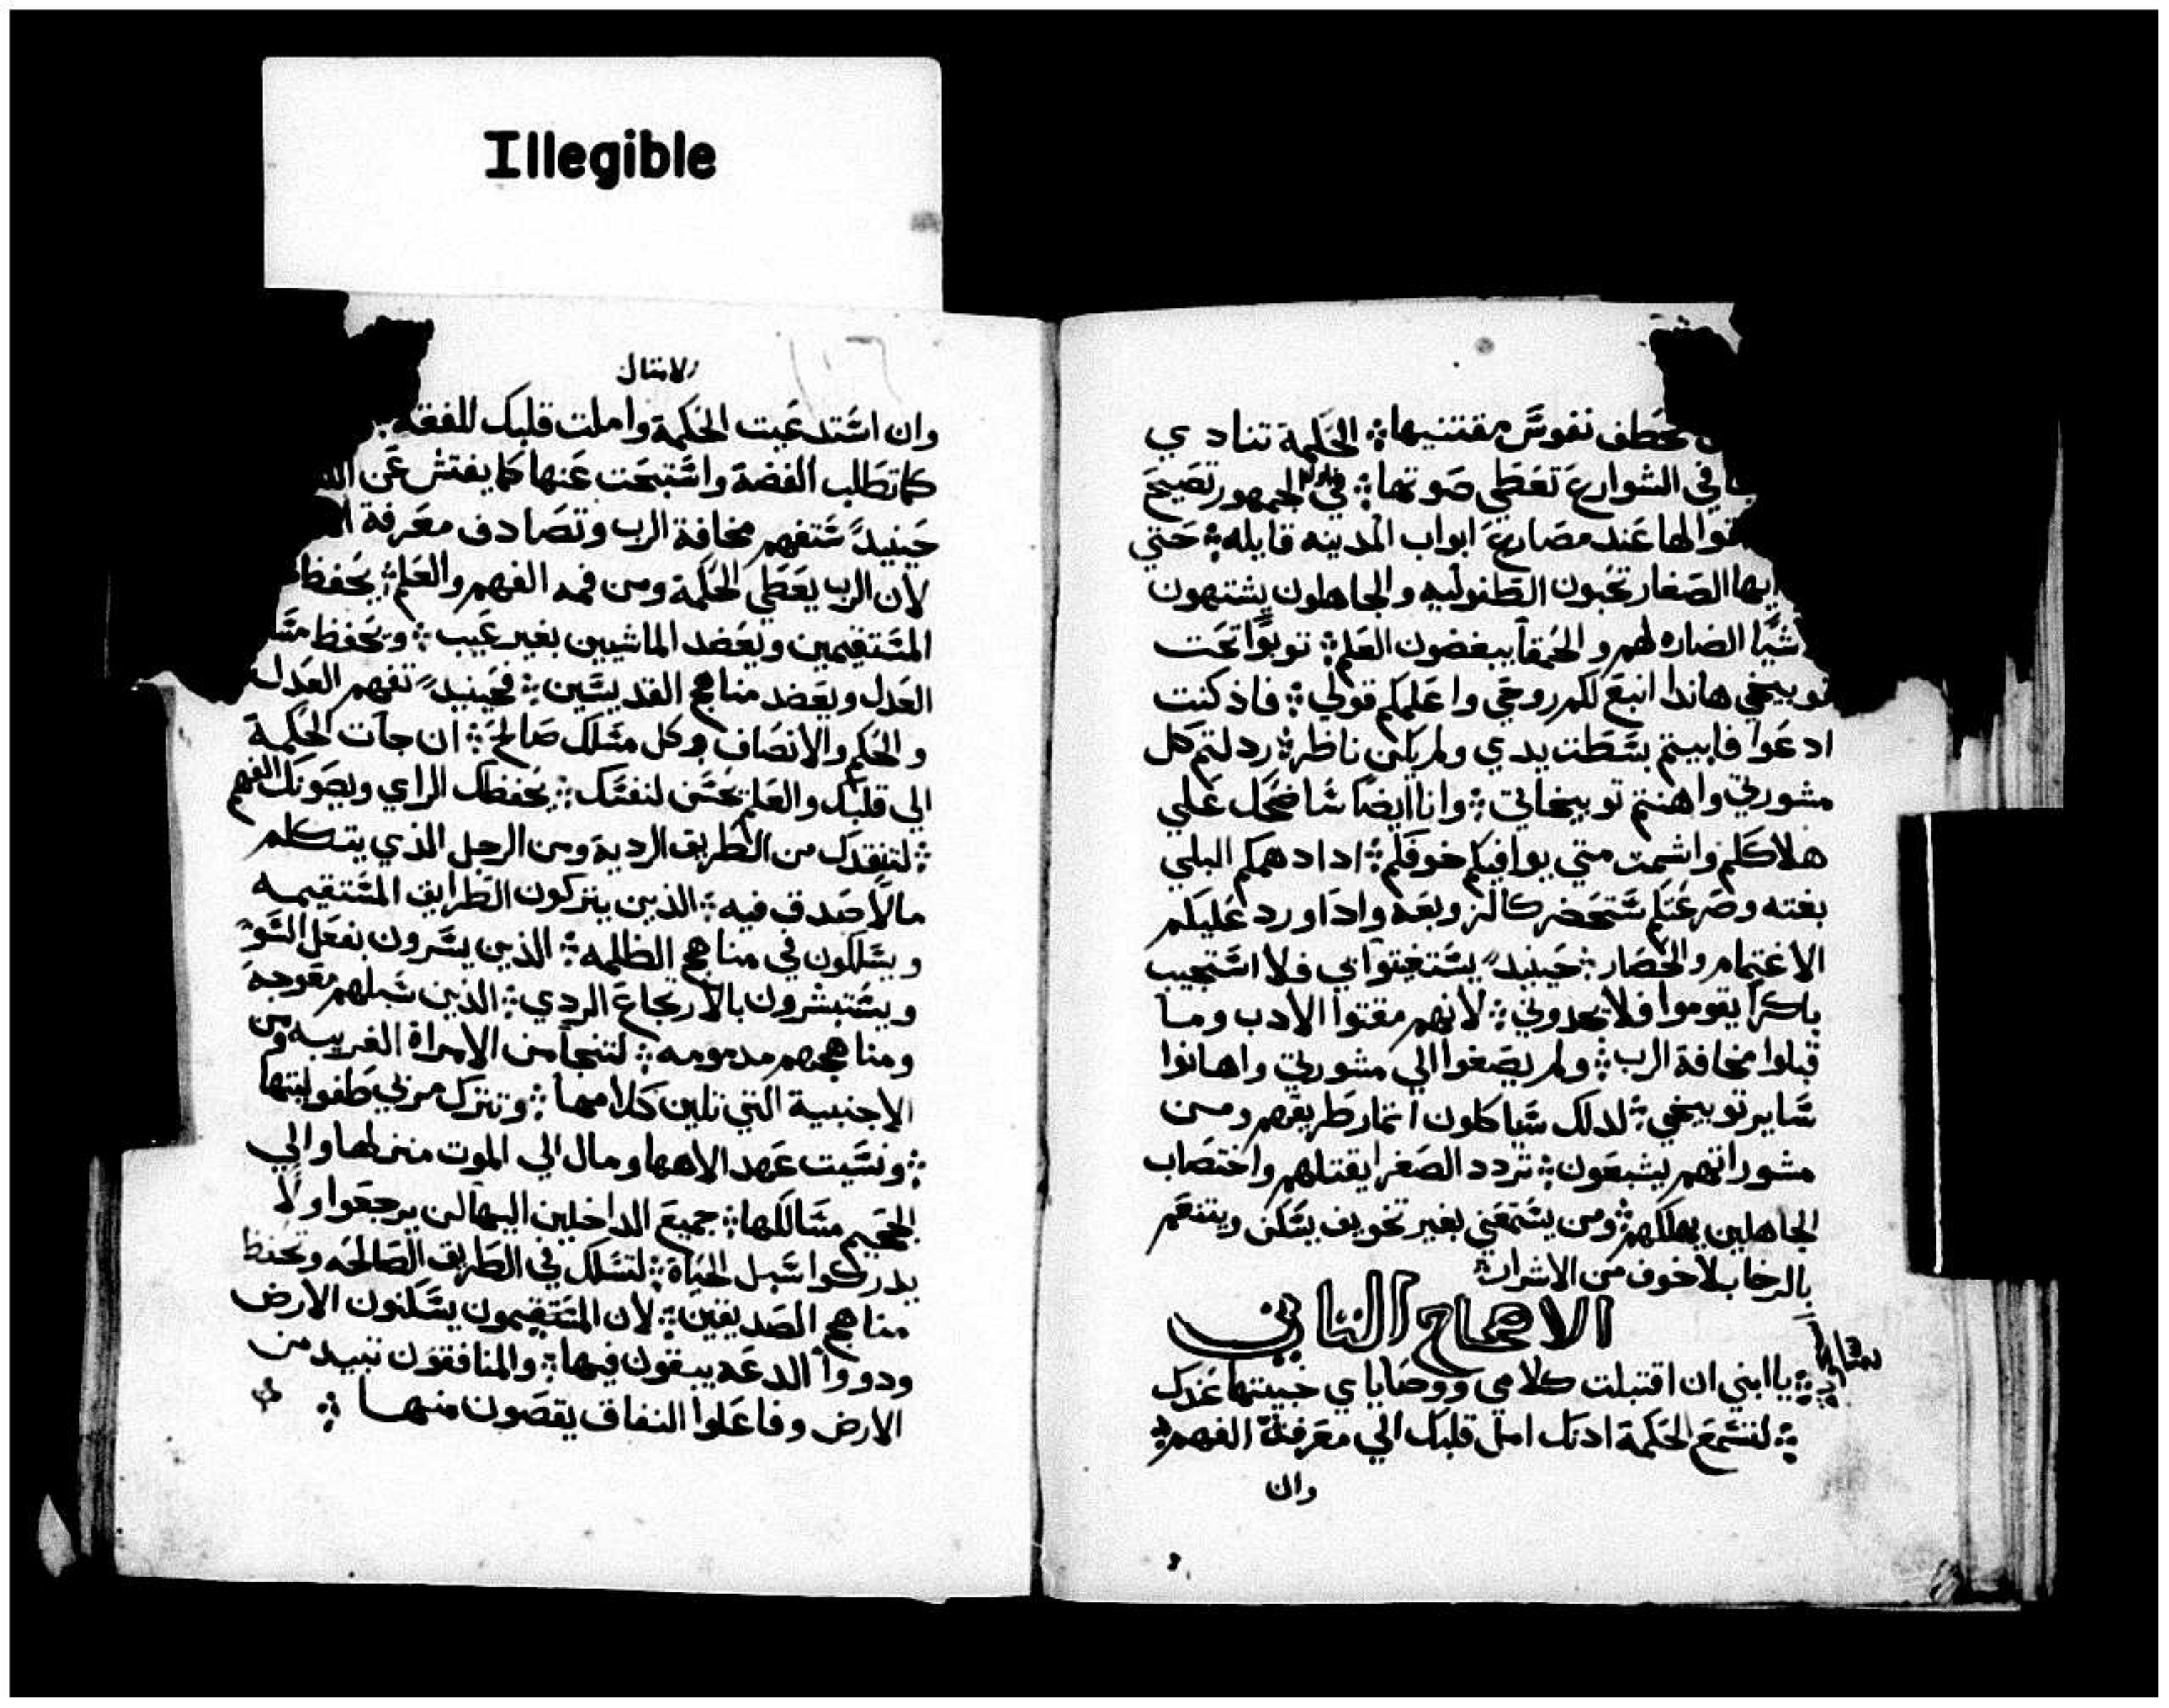 Illegible
تخطف نفوس مقتنيها الحكمة تنادي
في الشوارع تعطي صوتها في الجمهور تصيح
عند مصاريع ابواب المدينه قايله حتي
ايها الصغار تحبون الطفوليه والجاهلون يشتهون
الضاره لهم والحمقا يبغضون العلم توبوا تحت
توبيخي هاندا انبع لكم روحي واعلمكم قولي فاذ كنت
ادعوا فابيتم بسطت يدي ولم يكن ناظر ردلتم كل
مشورتي واهنتم توبيخاتي وانا ايضا ساضحك علي
هلاككم واشمت متي يوافيكم خوفكم ادا دهمكم البلي
بغته وصرعتكم ستحضر كالزوبعه وادا ورد عليكم
الاغتمام والحصار حينيد يستغيتوا بي فلا استجيب
باكرا يقوموا فلا يجدوني لانهم مقتوا الادب وما
قبلوا مخافة الرب ولم يصغوا الي مشورتي واهانوا
ساير توبيخي لدلك سياكلون اتمار طريقهم ومن
مشوراتهم يشبعون تردد الصغرا يقتلهم واختصاب
الجاهلين يهلكهم ومن يستمعني بغير تخويف يسكن ويتنعم
بالرخا بلا خوف من الاشرار
الاصحاح التاني
يا ابني ان اقتبلت كلامي ووصاياي خبيتها عندك
لتستمع الحكمة ادنك امل قلبك الي معرفة الفهم
وان
الامتال
وان استدعيت الحكمة واملت قلبك للفقه
كما تطلب الفضة واستبحت عنها كما يفتش عن
حينيد ستفهم مخافة الرب وتصادف معرفة
لان الرب يعطي الحكمة ومن فمه الفهم والعلم يحفظ
المستقيمين ويعضد الماشيين بغير عيب ويحفظ
العدل ويعضد مناهج القديسين فحينيد تفهم العدل
والحكم والانصاف وكل مسلك صالح ان جات الحكمة
الي قلبك والعلم يحسن لنفسك يحفظك الراي ويصونك الفهم
لتنقدك من الطريق الردية ومن الرجل الذي يتكلم
ما لا صدق فيه الذين يتركون الطرايق المستقيمه
ويسلكون في مناهج الظلمه الذين يسرون بفعل السو
ويستبشرون بالارتجاع الردي الذين سبلهم معوجة
ومناهجهم مدمومه لتنجا من الامراة الغريبه ومن
الاجنبية التي تلين كلامها وتترك مربي طفوليتها
ونسيت عهد الاهها ومال الي الموت منزلها والي
الجحيم مسالكها جميع الداخلين اليها لن يرجعوا ولا
يدركوا سبل الحياة لتسلك في الطريق الصالحه وتحفظ
مناهج الصديقين لان المستقيمون يسكنون الارض
ودووا الدعه يبقون فيها والمنافقون تبيد من
الارض وفاعلوا النفاق يقصون منها